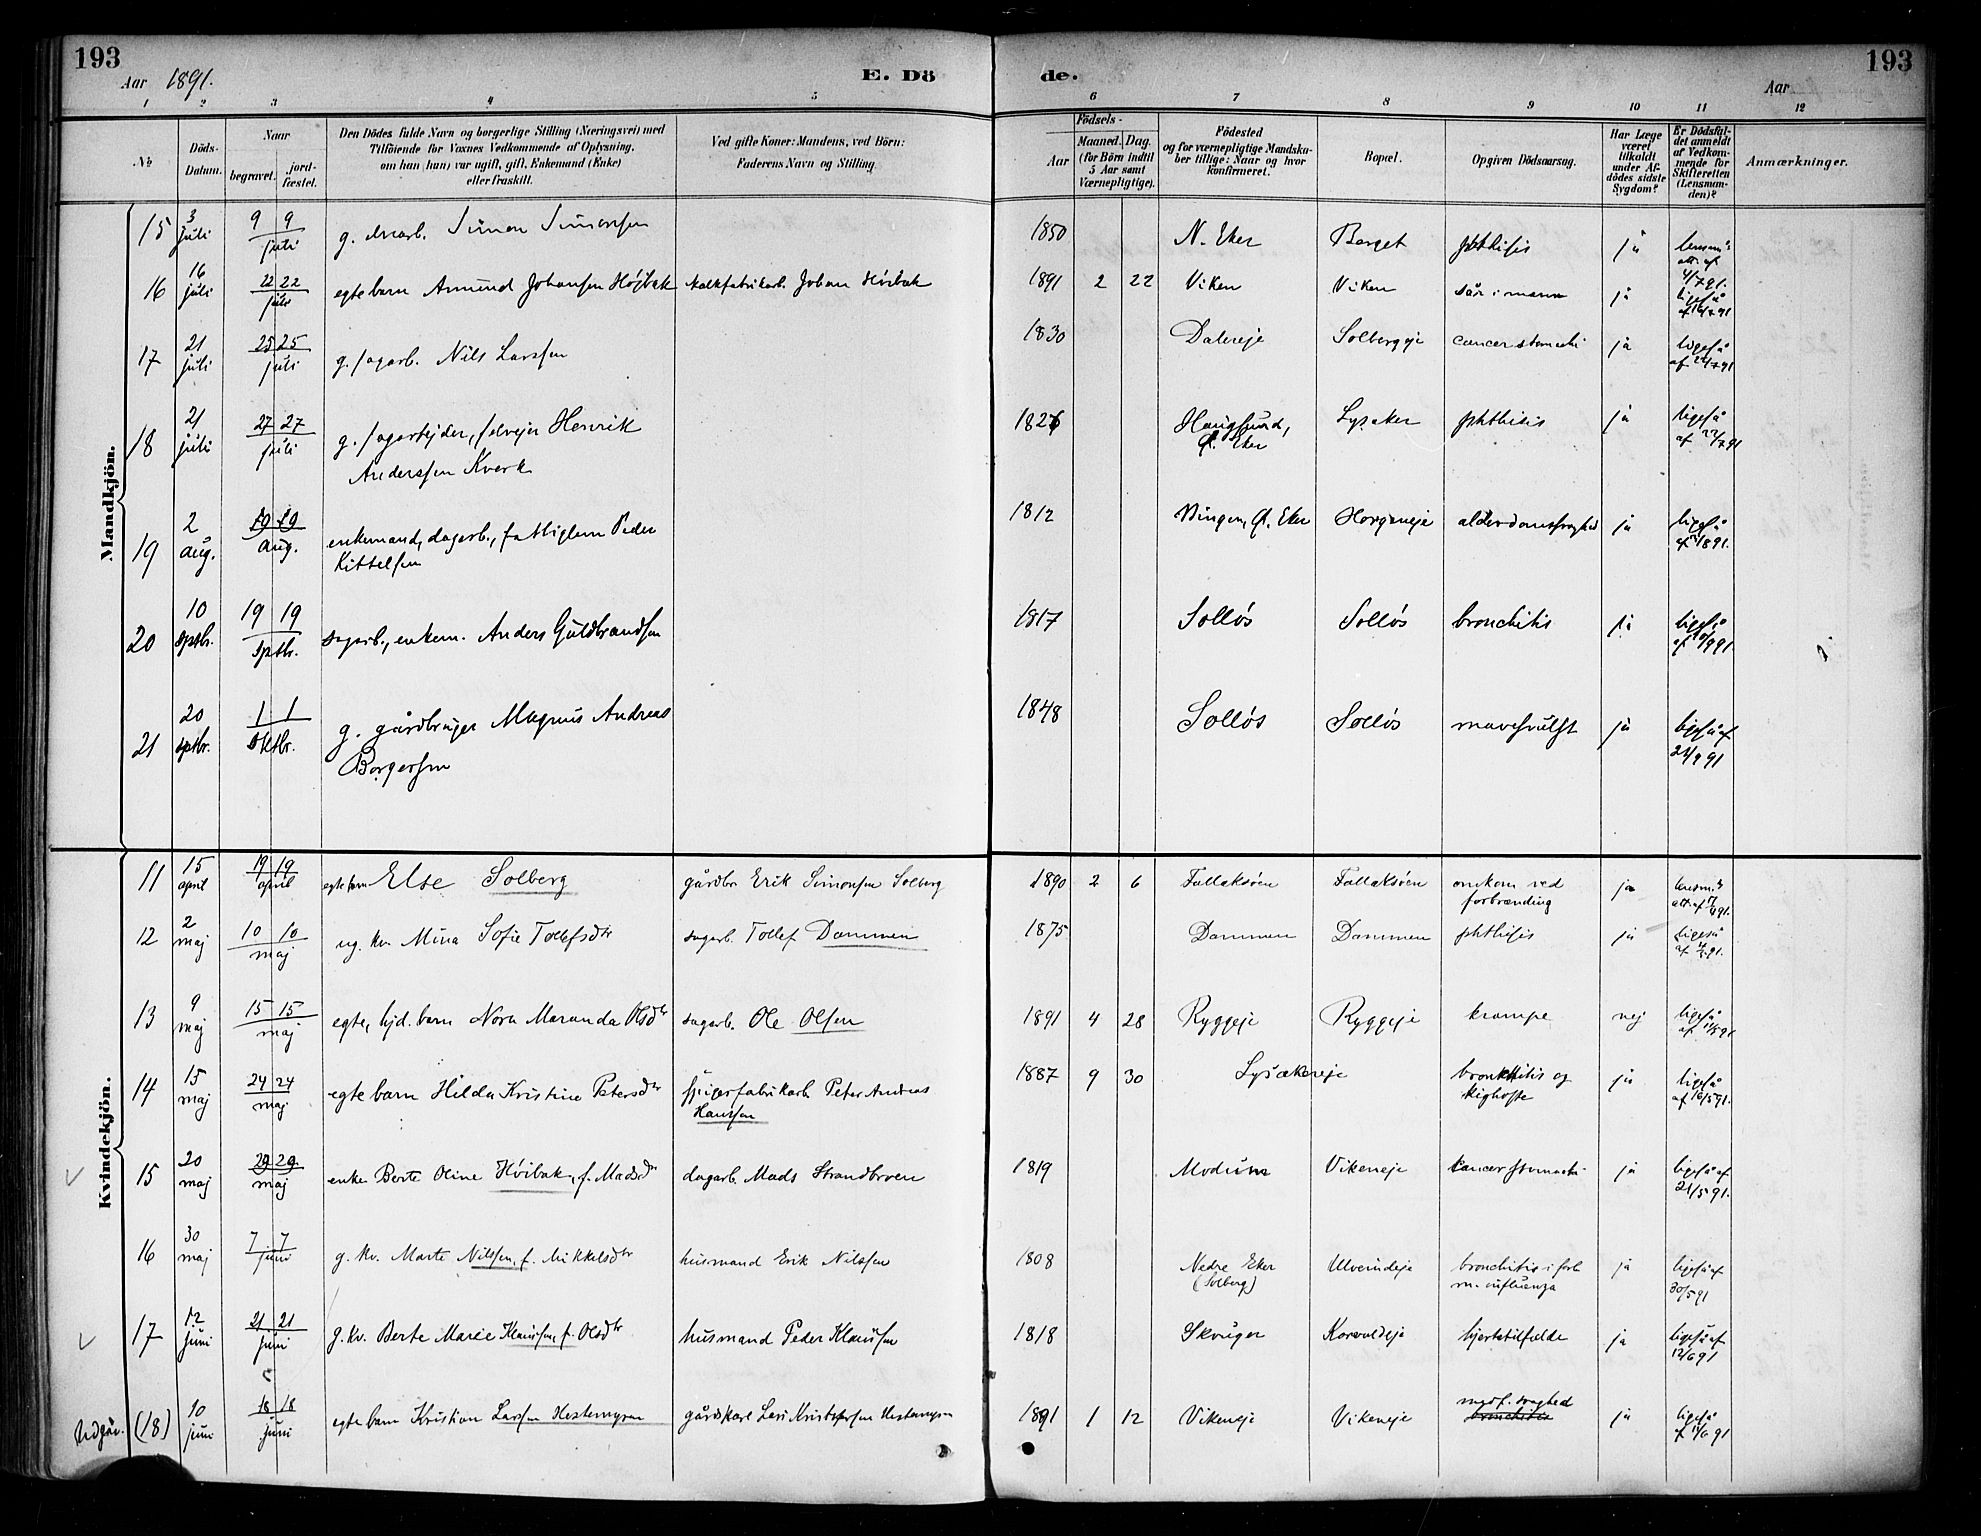 193
Aar 1891.
E. Dö
de.
Aar
193
1 2 3 4 5 6 7 8 9 10 11 12
No
Döds-
Datum.
Naar
begravet.
jord-
fæstet.
Den Dödes fulde Navn og borgerlige Stilling (Næringsvei) med
Tilföiende for Voxnes Vedkommende af Oplysning,
om han (hun) var ugift, gift, Enkemand (Enke)
eller fraskilt.
Ved gifte Koner: Mandens, ved Börn:
Faderens Navn og Stilling.
Födsels-
Aar
Maaned. Dag.
(for Börn indtil
5 Aar samt
Værnepligtige).
Födested
og for værnepligtige Mandska-
ber tillige: Naar og hvor
konfirmeret.
Bopæl.
Opgiven Dödsaarsag.
Har Læge
været
tilkaldt
under Af-
dödes sidste
Sygdom?
Er Dödsfal-
det anmeldt
af Vedkom-
mende for
Skifteretten
(Lensman-
den)?
Anmærkninger.
Mandkjön.
15 3 juli 9 9 juli g. Simon Simensen 1850 N. Eker Berget phthisis ja lensm's att. af 4/7 91.
16 16 juli 22 22 juli egte barn Amund Johansen Højbak kalkfabrikarb. Johan Høibak 1891 2 22 Viken Viken sår i maven ja ligeså af 16/7 91
17 21 juli 25 25 juli g. sagarb. Nils Larssen 1830 Dalereje Solbergeje cancer stomachi ja ligeså af 22/7 91
18 21 juli 27 27 juli g. sagarbejder, selvejer Henrik
Anderssen Kverk 1826 Haugsund, Ø. Eker Lysaker phthisis ja ligeså af 22/7 91
19 2 aug. 19 19 aug. enkemand, dagarb., fattiglem Peder
Kittelsen 1812 Ø. Eker Horgeneje alderdomssvaghed ja ligeså af 891.
20 10 sptbr. 19 19 sptbr. sagarb., enkem. Anders Guldbrandsen 1817 Solløs Solløs bronchitis ja ligeså af 10/9 91.
21 20 sptbr. 1 1 oktbr. g. gårdbruger Magnus Andreas
Borgersen 1848 Solløs Solløs mavesvulst ja ligeså af 21/9 91
Kvindekjön.
11 15 april 19 19 april egte barn Else Solberg gårdbr. Erik Simonsen Solberg 1890 2 6 Fallaksøen Fallaksøen omkom ved
forbrænding ja lensm.'s att. af 17/4 91.
12 2 maj 10 10 maj ug. kv. Mina Sofie Tollefsdtr sagarb. Tollef Dammen 1875 Dammen Dammen phthisis ja ligeså af 91.
13 9 maj 15 15 maj egte, hjd. barn Nora Maranda Olsdtr sagarb. Ole Olsen 1891 4 28 Ryggeje Ryggeje krampe nej ligeså af 91
14 15 maj 24 24 maj egte barn Hilda Kristine Petersdtr spigerfabrikarb. Peter Andreas
Hanssen 1887 9 30 Lysakereje bronkhitis og
kighoste ja ligeså af 16/5 91.
15 20 maj 29 29 maj enke Berte Oline Høibak, f. Madsdtr dagarb. Mads Strandbroen 1819 Modum Vikeneje cancer stomachi ja ligeså af 21/5 91.
16 30 maj 7 7 juni g. kv. Marte Nilssen, f. Mikkelsdtr husmand Erik Nilssen 1808 Nedre Eker
(Solberg) Ulverudeje bronchitis i forb.
m. influenza ja ligeså af 30/5 91
17 12 juni 21 21 juni g. kv. Berte Marie Klausen, f. Olsdtr husmand Peder Klausen 1818 Skouger Korvoldeje hjertetilfelde ja ligeså af 12/6 91
Udgår. (18) 10 juni 18 18 juni egte barn Kristian Larssen Hestemyren gårdskarl Lars Kristofersen Hestemyren 1891 1 12 Vikeneje Vikeneje medf. svaghed
bronchitis ja ligeså af 11/6 91